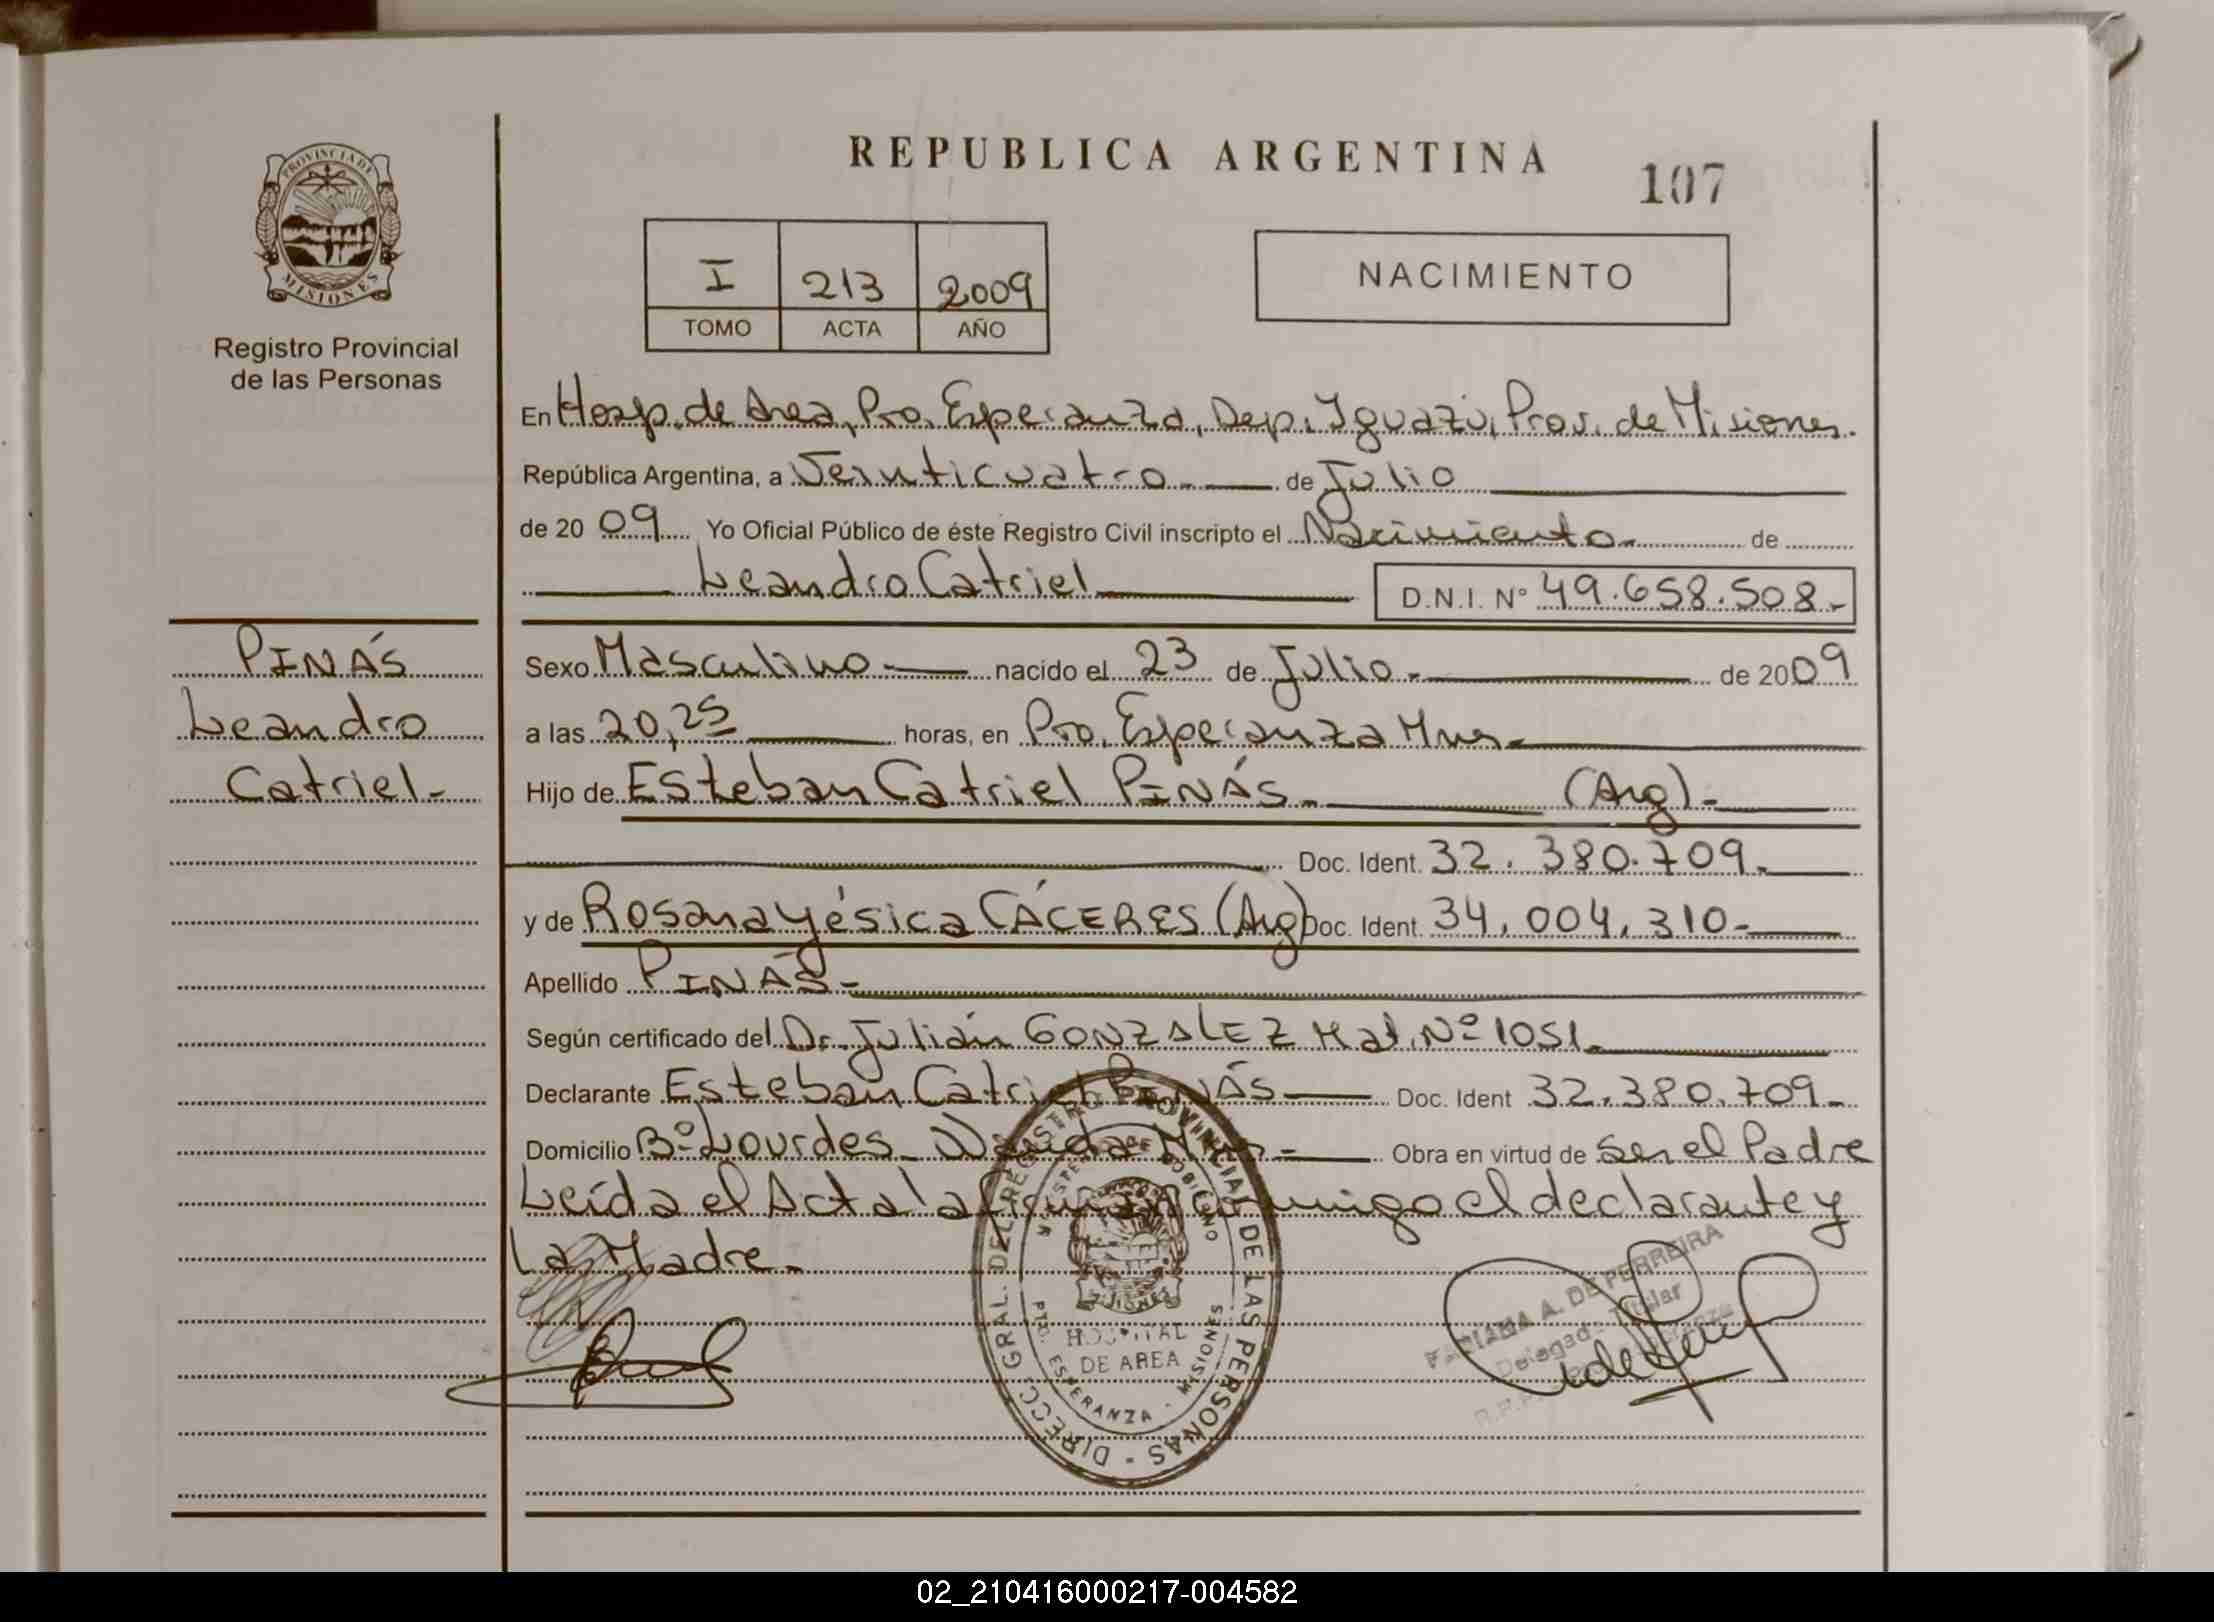 PROVINCIA DE
MISIONES
Registro Provincial
de las Personas
REPUBLICA ARGENTINA
107
I 213 2009
TOMO ACTA AÑO
NACIMIENTO
En Hosp. de Area, Pto. Esperanza, Dep. Iguazú, Prov. de Misiones.
República Argentina, a Veinticuatro de Julio
de 2009 Yo Oficial Público de éste Registro Civil inscripto el Nacimiento de
Leandro Catriel D.N.I. N° 49.658.508.-
PINÁS
Leandro
Catriel.-
Sexo Masculino nacido el 23 de Julio.- de 2009
a las 20,25 horas, en Pto. Esperanza Mnes.-
Hijo de Esteban Catriel PINÁS.- (Arg).-
Doc. Ident. 32.380.709.-
y de Rosana Yésica CÁCERES (Arg) Doc. Ident. 34.004.310.-
Apellido PINÁS.-
Según certificado del Dr. Julián GONZALEZ Mat. Nº 1051.
Declarante Esteban Catriel PINÁS Doc. Ident 32.380.709.-
Domicilio Bº Lourdes Wanda Mnes.- Obra en virtud de ser el Padre
Leída el Acta la firman conmigo el declarante y
La Madre.-
DIRECC. GRAL. DEL REGISTRO PROVINCIAL DE LAS PERSONAS -
MINISTERIO DE GOBIERNO
MISIONES
HOSPITAL
DE AREA
PTO. ESPERANZA - MISIONES
A. DE FERREIRA
Delegada Titular
02_210416000217-004582